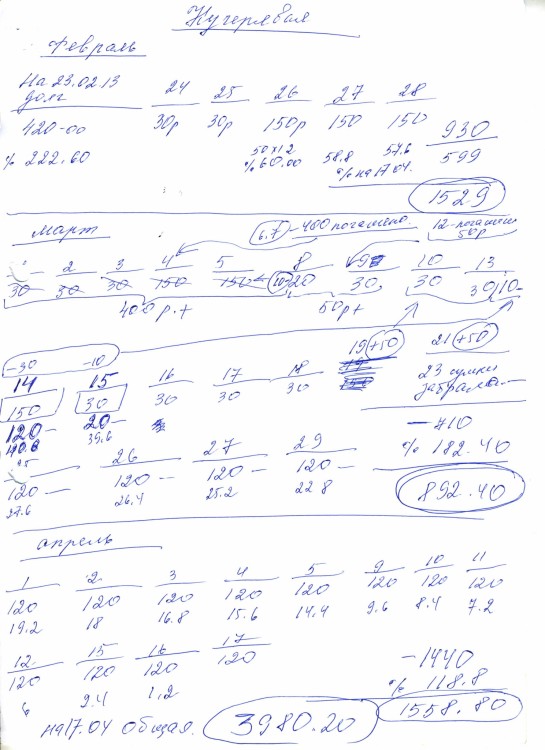 Кучерявая
Февраль
На 23.02.13 долг 24 25 26 27 28
420-00 30р 30р 150р 150 150 930
% 222.60 50х12 % 60.00 58.8 57.6 599
% на 17.04.
1529
Март 6,7 - 400 погашено. 12-погашен 50р
2 3 4 5 8 9 10 13
30 30 30 150 150 20 30 30 30 10-
400р.+ 50р+
-30 -10 19 +50 21 +50
14 15 16 17 18 23 сумки
150 30 30 30 30 забрала
120- 20- -710
39.6 % 182.40
26 27 29
120- 120- 120- 120- 892.40
27.6 26.4 25.2 22.8
апрель
1 2 3 4 5 9 10 11
120 120 120 120 120 120 120 120
19.2 18 16.8 15.6 14.4 9.6 8.4 7.2
12 15 16 17
120 120 120 120 -1440
6 2.4 1,2 % 118.8
1558.80
на 17.04 общая. 3980.20